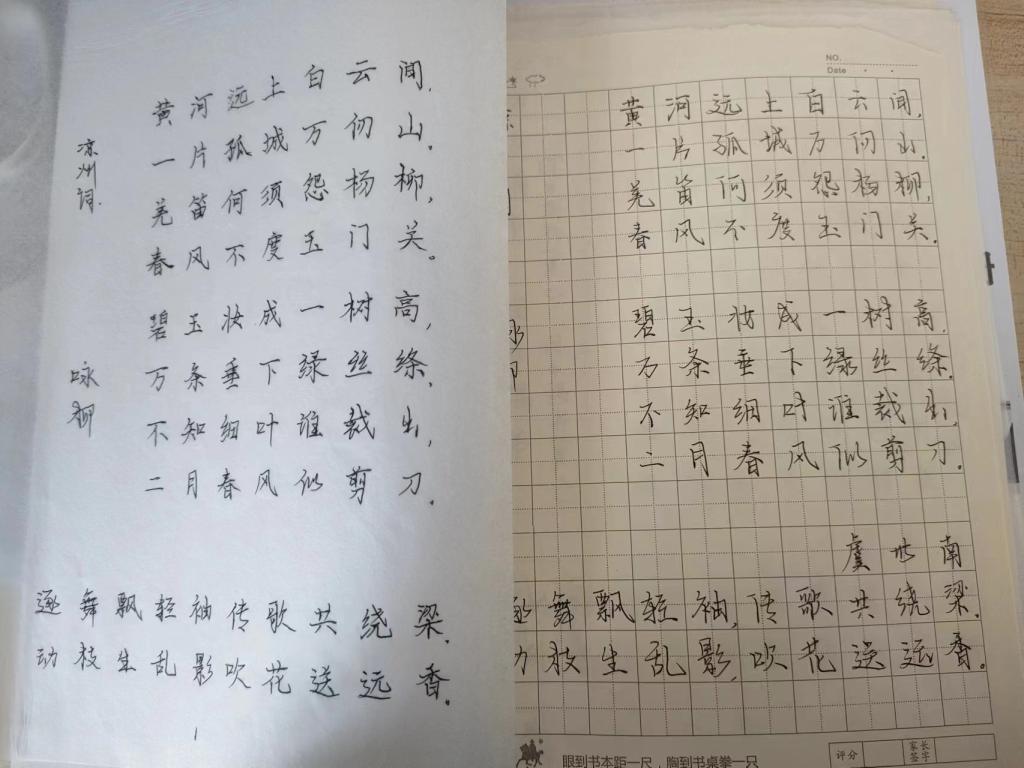 凉州词
黄河远上白云间,
一片孤城万仞山。
羌笛何须怨杨柳,
春风不度玉门关。
咏柳
碧玉妆成一树高,
万条垂下绿丝绦。
不知细叶谁裁出,
二月春风似剪刀。
逐舞飘轻袖传歌共绕梁.
动枝生乱影吹花送远香。
1
NO.
Date
黄河远上白云间,
一片孤城万仞山.
羌笛何须怨杨柳,
春风不度玉门关.
碧玉妆成一树高,
万条垂下绿丝绦.
不知细叶谁裁出,
二月春风似剪刀.
虞世南
舞飘轻袖,传歌共绕梁.
枝生乱影,吹花送远香。
眼到书本距一尺，胸到书桌拳一只
评分
家长签字